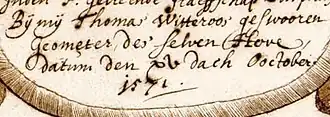 Bij mij Thomas Witteroos geswooren
Geometer des selven Hove
datum den XV dach Ooctober
1571.